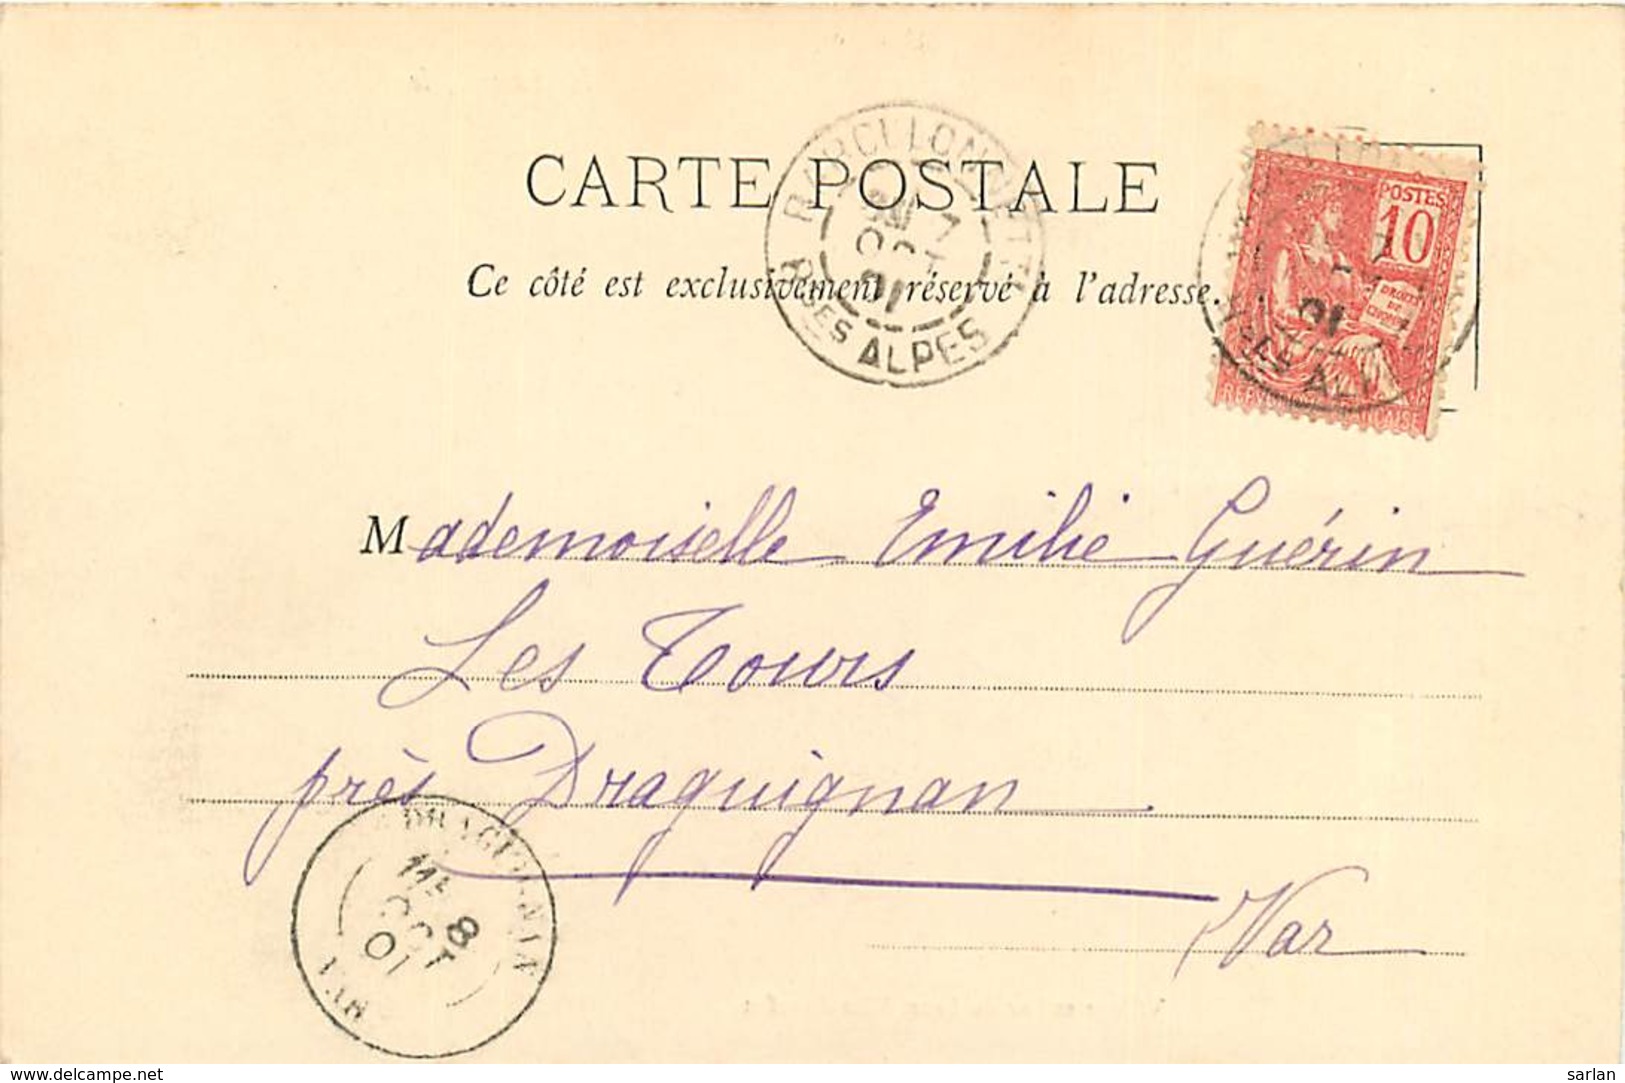 CARTE POSTALE
Ce côté est exclusivement réservé à l'adresse.
BARCELONNETTE
7
OCT
01
BSES ALPES
POSTES
10
DROITS
DE
L'HOMME
REPUBLIQUE FRANÇAISE
01
Mademoiselle Emilie Guérin
Les Tours
près Draguignan
Var
DRAGUIGNAN
8
OCT
01
VAR
www.delcampe.net
sarlan